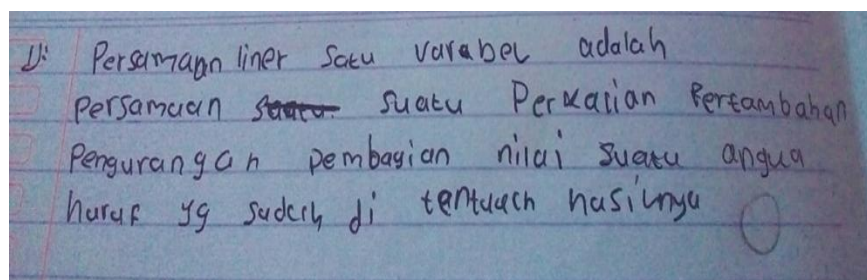 1). Persamaan liner Satu varabel adalah
Persamaan suatu Perkalian Pertambahan
Pengurangan pembagian nilai suatu angua
huruf yg sudah di tentuach hasilnya